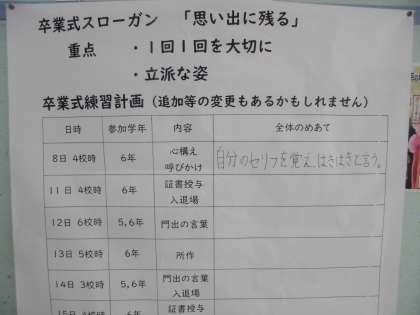 卒業式スローガン 「思い出に残る」
重点 ・1回1回を大切に
・立派な姿
卒業式練習計画（追加等の変更もあるかもしれません）
日時 参加学年 内容 全体のめあて
8日 4校時 6年 心構え 呼びかけ 自分のセリフを覚え、はきはきと言う。
11日 4校時 6年 証書授与 入退場
12日 6校時 5,6年 門出の言葉
13日 5校時 6年 所作
14日 3校時 5,6年 門出の言葉 入退場
15日 4校時 6年 証書授与